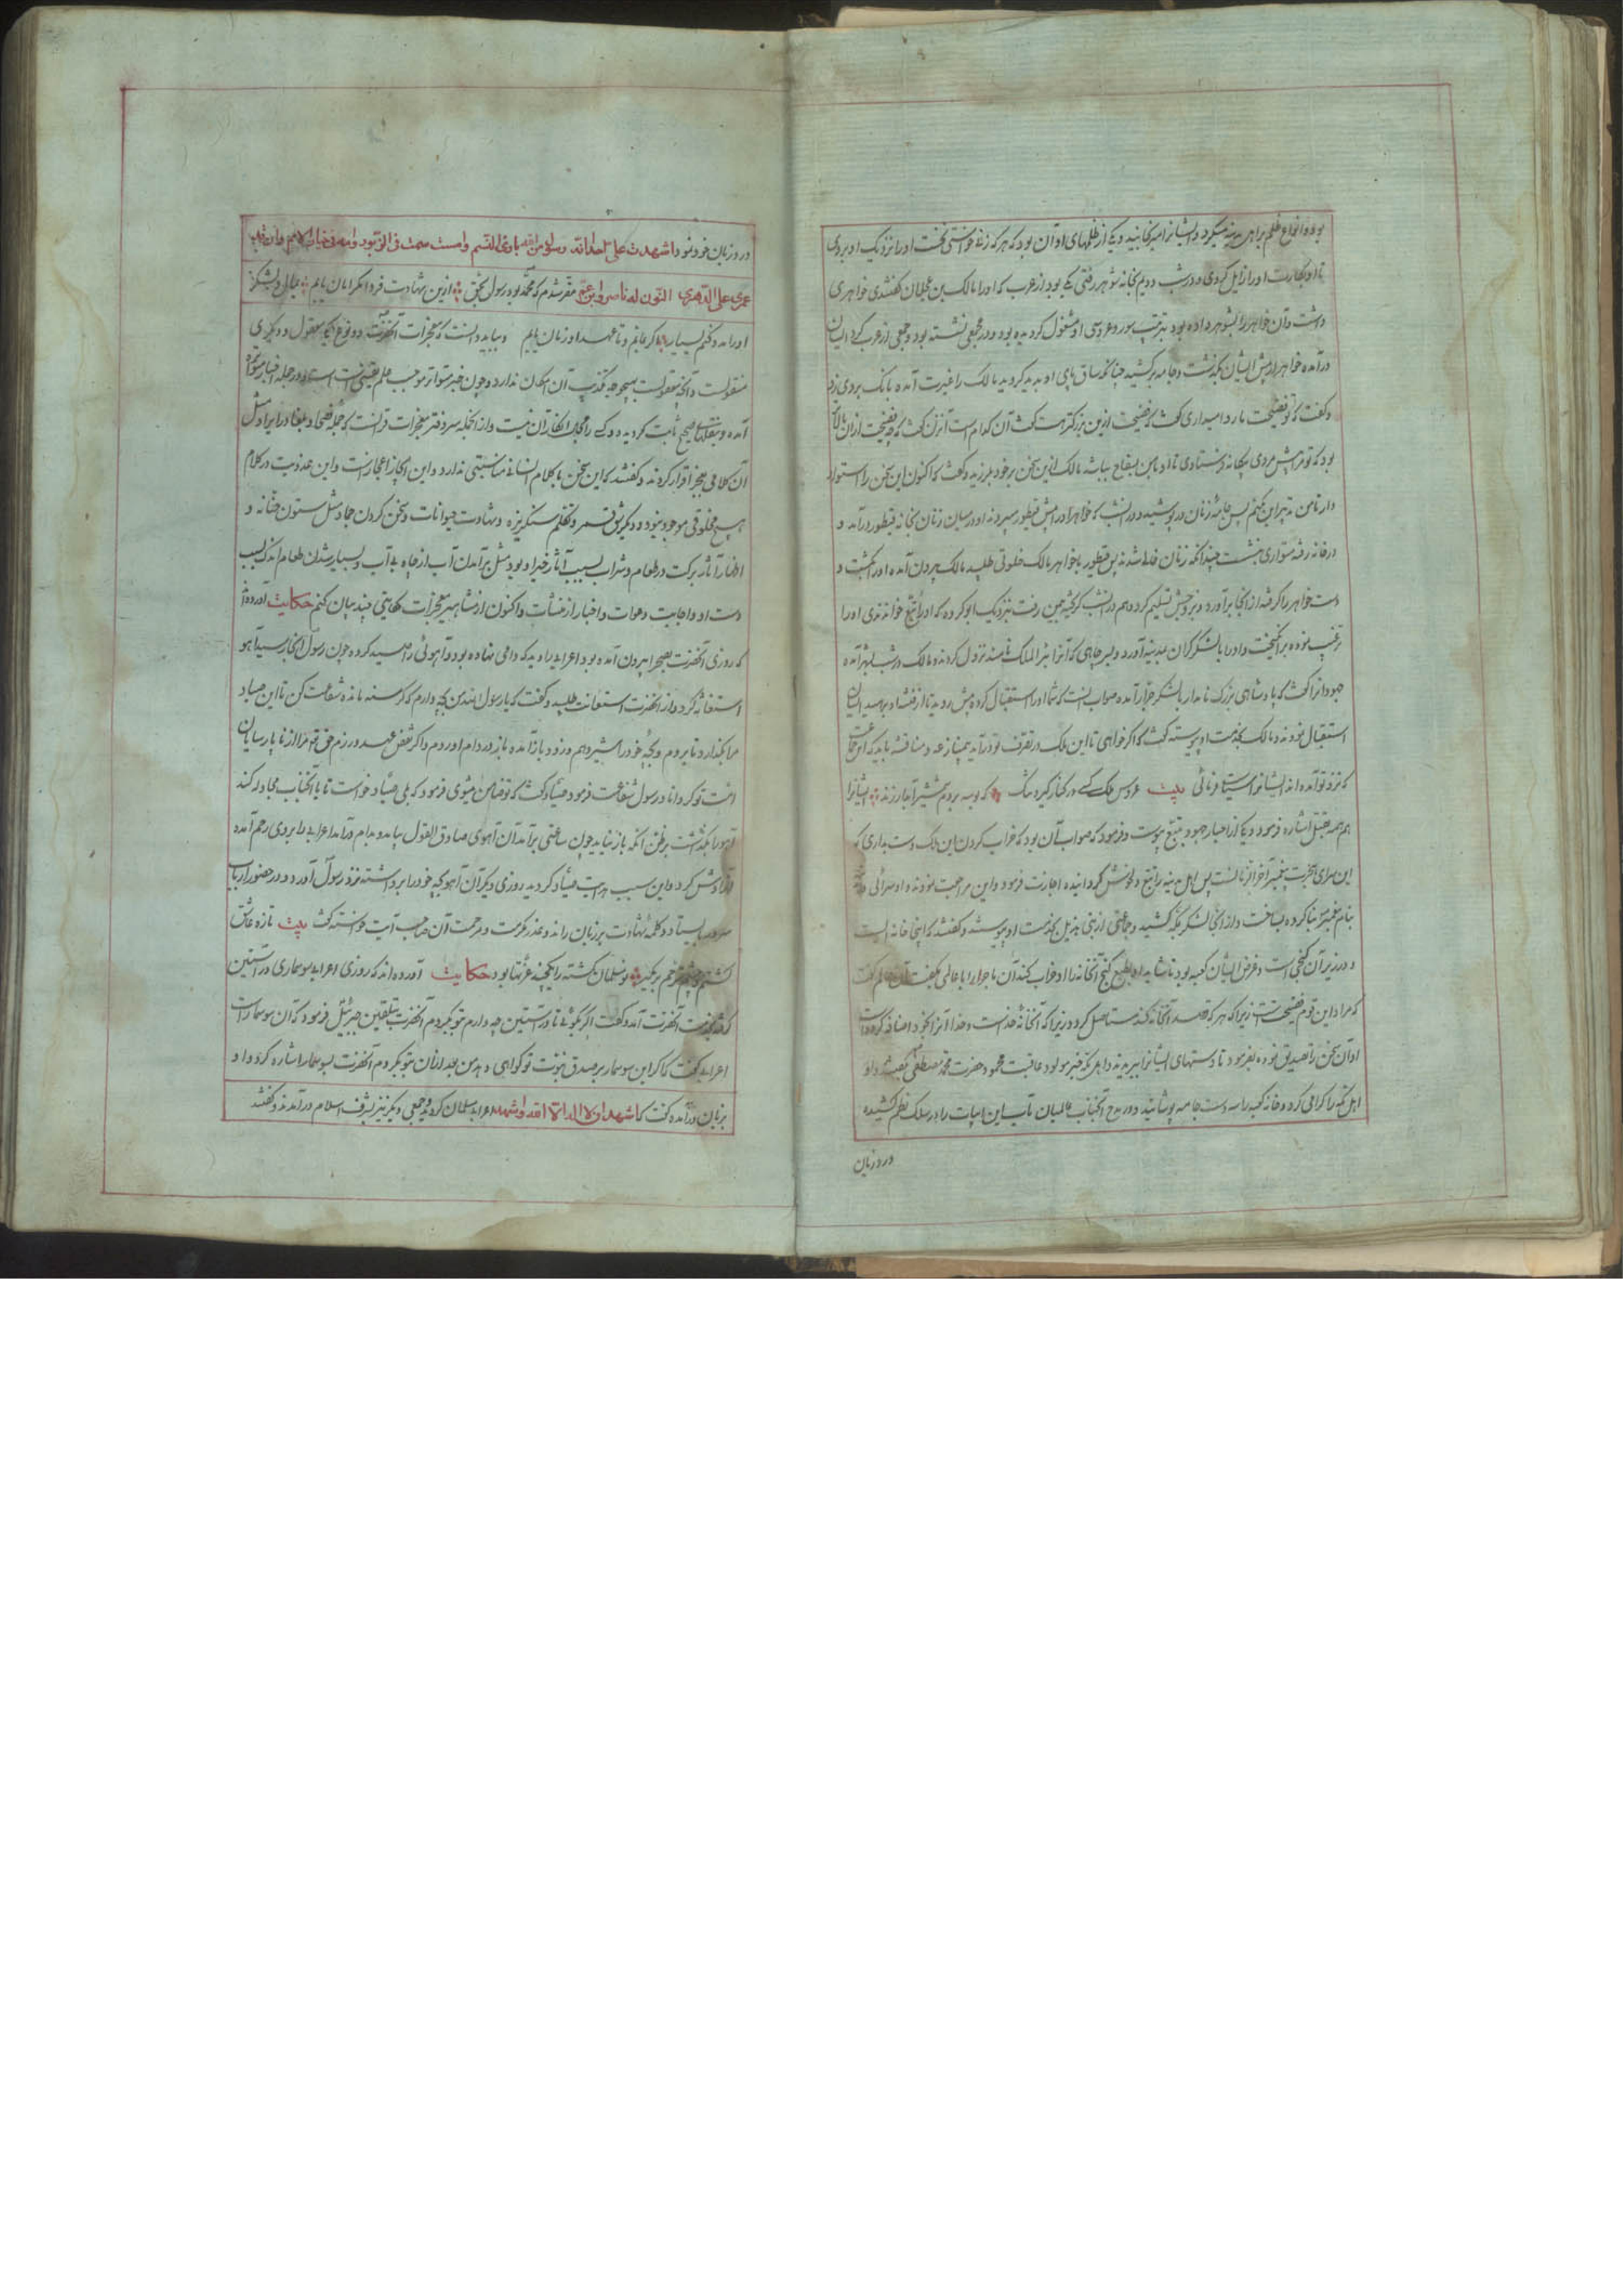 بود و انواع ظلم بر اهل مدینه میکرد و ایشانرا میرنجانید و یکی از ظلمهای او آن بود که هر که زنی خواستی نخست او را نزدیک او بردی
تا او بکارت او را زایل کردی و در شب دویم بخانه شوهر رفتی یکی بود از عرب که او را مالک بن عجلان گفتندی خواهری
داشت و آن خواهر را بشوهر داده بود بترتیب سور و عروسی او مشغول گردیده بود و در مجمعی نشسته بود و جمعی از عرب گرد ایشان
درآمده خواهر از پیش ایشان بگذشت و جامه برکشید چنانکه ساق پای او بدید گردید مالک را غیرت آمده بانگ بروی زد
و گفت که تو فضیحت ما روا میداری گفت که فضیحت ازین بزرگتر هست گفت آن کدام است آن زن گفت که چه فضیحت ازان بالاتر
بود که تو مرا پیش مردی بیگانه فرستادی تا او با من بسفاح بباشد مالک ازین سخن برخود بلرزید و گفت که اکنون این سخن را استوار
دار تا من تدبیر این بکنم پس جامه زنان در پوشید و در آنشب که خواهر او را پیش قیطور میبردند او در میان زنان بخانه قیطور درآمد و
در خانه رفته متواری بنشست چندانکه زنان جدا شدند پس قیطور با خواهر مالک خلوتی طلبید مالک بیرون آمده او را بکشت و
دست خواهر را گرفته از آنجا برآورد و بزوجش تسلیم کرد و هم در آنشب گریخته بیمن رفت نزدیک ابو کرده که او را تبع خواندندی او را
ترغیب نموده برانگیخت و او را با لشکر گران بمدینه آورد و بسر چاهی که آنرا بئر الملک گفتند نزول کردند و مالک در شب بشهر آمده
جهودانرا گفت که پادشاهی بزرگ نامدار با لشکر جرار آمده صواب آنست که شما او را استقبال کرده پیش روید تا از فتنه او برهید ایشان
استقبال نمودند و مالک بخدمت او پیوسته گفت که اگر خواهی تا این ملک در تصرف تو درآید بیمنازعه و مناقشه باید که این جماعت
که نزد تو آمده اند ایشانرا سیاست فرمائی بیت عروس ملک کسی در کنار گیرد تنگ که بوسه بر دم شمشیر آبدار زند ایشانرا
هم همه بقتل اشاره فرمود و یکی از احبار جهود بتبع پیوست و فرمود که صواب آن بود که خراب کردن این ملک دست بداری که
این سرای هجرت پیغمبر آخرالزمانست پس اهل مدینه را تبع دلخوش گردانیده اجازت فرمود و این مراجعت نمودند و او سرائی
بنام پیغمبر بنا کرده بساخت و از آنجا لشکر بمکه کشید و جماعتی از بنی هذیل بخدمت او پیوسته و گفتند که اینجا خانه ایست
و در زیر آن گنجی است و غرض ایشان کعبه بود تا شاید او بطمع گنج آنخانه را او خراب کند آن ماجرا را با عالمی بگفت آن عالم گفت
که مراد این قوم فضیحت تست زیرا که هر که قصد آنخانه کند مستاصل گردد زیرا که آنخانه خداست و خدا آنرا بخود اضافه کرده است
او آن سخن را تصدیق نموده بفرمود تا دستهای ایشانرا ببریدند و اهل مکه قبر مولود عاقبت محمود حضرت محمد مصطفی
اهل مکه را گرامی کرد و خانه کعبه را سه دست جامه پوشانید و در مدح آنجناب عالمیان تاب این ابیات را در سلک نظم کشیده
در و زبان
در و زبان خود نمود اشهدت علی احمد انه رسول من الله باری النسم
عمری علی الدهری اکون له ناصر و ابن عم مقر شدم که محمد بود رسول بحق ازین شهادت فردا مگر امان یابم
او را مدد کنم بسیار اگر بمانم و تا عهد او زمان یابم و بباید دانست که معجزات آنحضرت دو نوع یکی معقول و دیگری
منقولست و آنچه معقولست بهیچ وجه تکذیب آن امکان ندارد و چون خبر متواتر موجب علم یقینی است
آمده و بنقلهای صحیح ثابت گردیده و کسی را مجال انکار آن نیست و از آنجمله سر دفتر معجزات قرآنست که جمله فصحا و بلغا در ایراد مثل
آن کلامی بعجز اقرار کردند و گفتند که این سخن با کلام انسانی مناسبتی ندارد و این ایجاز اعجازست و این عذوبت در کلام
هیچ مخلوقی موجود نبود و دیگر شق قمر و تکلم سنگریزه و شهادت حیوانات و سخن کردن جماد مثل ستون حنانه و
اظهار آثار برکت در طعام و شراب بسبب آثار خیر او بود مثل برآمدن آب از چاه بی آب و بسیار شدن طعام اندک بسبب
دست او و اجابت دعوات و اخبار از مغیبات و اکنون از مشاهیر معجزات حکایتی چند بیان کنم حکایت آورده اند
که روزی آنحضرت بصحرا بیرون آمده بود اعرابی را دید که دامی نهاده بود و آهوئی را صید کرده چون رسول آنجا رسید آهو
استغاثه کرد و از آنحضرت استعانت طلبید و گفت که یا رسول الله من بچه دارم که گرسنه مانده شفاعت کن تا این صیاد
مرا بگذارد تا بروم و بچه خود را شیر دهم و زود باز آمده باز در دام او روم و اگر نقض عهد ورزم حق تو مرا از ناپارسایان
امت تو گرداند رسول شفاعت فرمود صیاد گفت که تو ضامن میشوی فرمود که بلی صیاد خواست تا با آنجناب مجادله کند
آهو را بگذاشت برظن آنکه باز نیاید چون ساعتی برآمد آن آهوی صادق القول بیامد و بدام درآمد اعرابی را بروی رحم آمده
آزادش کرد و این سبب هدایت صیاد گردید روزی دیگر آن آهو بچه خود را برداشته نزد رسول آورد و در حضور ارباب
بایستاد و کلمه شهادت بر زبان راند و عذر مکرمت و مرحمت آن صاحب آیت خواسته گفت بیت تازه عاشق
گشتم و چشم ترحم بر منگیر نو مسلمان گشته را بیچیند عزتها بود حکایت آورده اند که روزی اعرابی سوسماری در آستین
کرده بخدمت آنحضرت آمد و گفت اگر بگوئی تا در آستین چه دارم بتو بگروم آنحضرت بتلقین جبرئیل فرمود که آن سوسمار است
اعرابی گفت که اگر این سوسمار بر صدق نبوت تو گواهی دهد من بعد ازان بتو بگروم آنحضرت بسوسمار اشاره کرد و او
بزبان درآمده گفت که اشهد ان لا اله الا الله و اشهد اعرابی مسلمان گردیده جمعی دیگر نیز بشرف اسلام درآمدند و گفتند